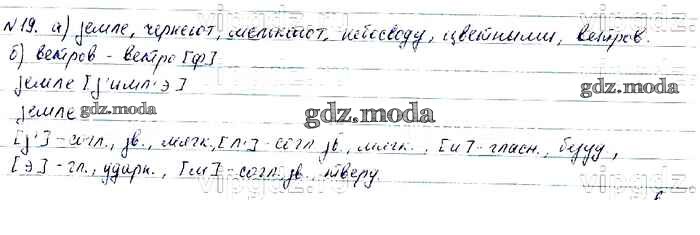 №19. а) земле, чернеют, мелькают, небосводу, цветными, ветров.
б) ветров - ветро[ф]
земле [з'имл'э]
земле gdz.moda
gdz.moda
gdz.moda
[з'] - согл., зв., мягк., [л'] - согл. зв., мягк., [и] - гласн., безуд,
[э] - гл., ударн., [м] - согл. зв. тверд.